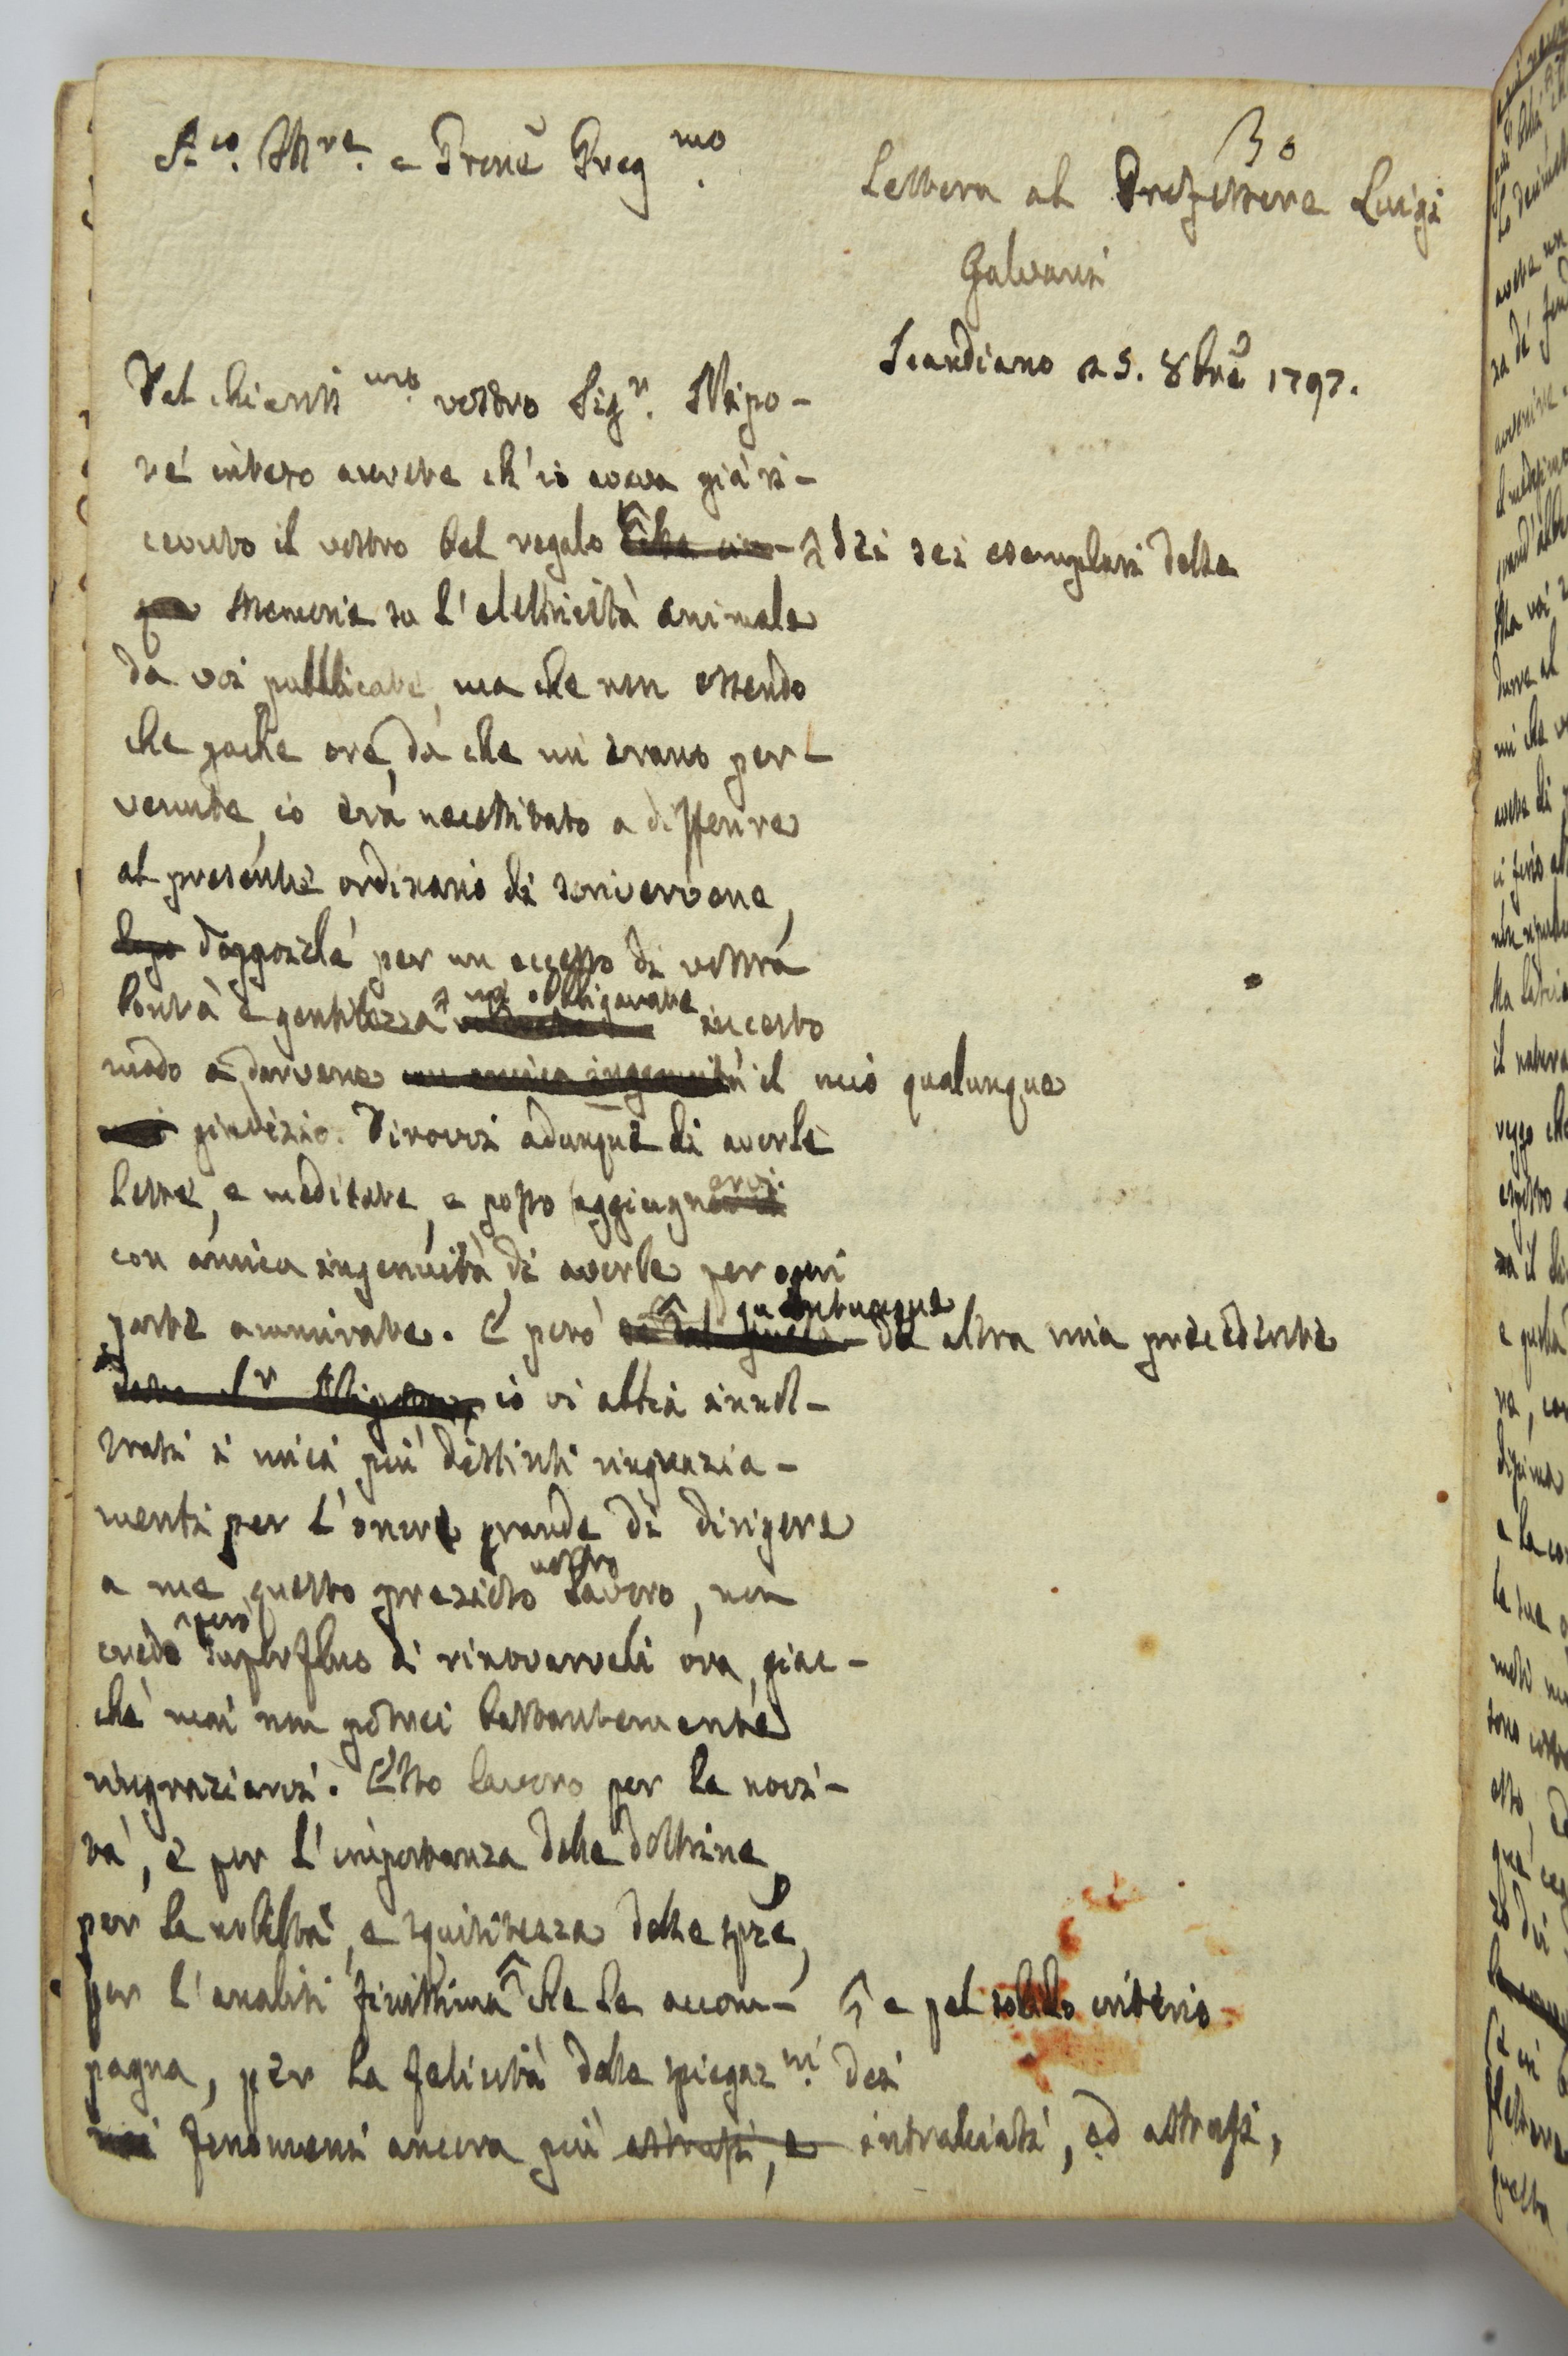 30
A.co Ill.re e Prone Preg.mo
Lettera al Professore Luigi
Galvani
Scandiano 25. 8bre 1797.
Dal chiariss.mo vostro Sig.r Nipo-
te inteso avrete ch'io aveva già ri-
cevuto il vostro bel regalo dei sei esemplari delle
Memorie su l'elettricità animale
da voi pubblicate, ma che non essendo
che poche ore, da che mi erano per-
venute, io era necessitato a differire
al presente ordinario di scrivervene,
dappoiché per un eccesso di vostra
bontà e gentilezza mi obbligavate in certo
modo a darvene con amica ingenuità il mio qualunque
giudizio. Dirovvi adunque di averle
lette, e meditate, e posso aggiugnervi
con amica ingenuità di averle per ogni
parte ammirate. E però quantunque da altra mia precedente
io vi abbia innol-
trati i miei più distinti ringrazia-
menti per l'onore grande di dirigere
a me questo prezioso vostro lavoro, non
credo però superfluo di rinovarveli ora, giac-
chè mai non potrei bastantemente
ringraziarvi. Esso lavoro per la novi-
tà, e per l'importanza delle dottrine,
per la nobiltà, e squisitezza delle spze,
per l'analisi finissima che le accom- e pel solido criterio
pagna, per la felicità delle spiegaz.ni dei
fenomeni ancora più astrusi, e intralciati, ed astrusi,